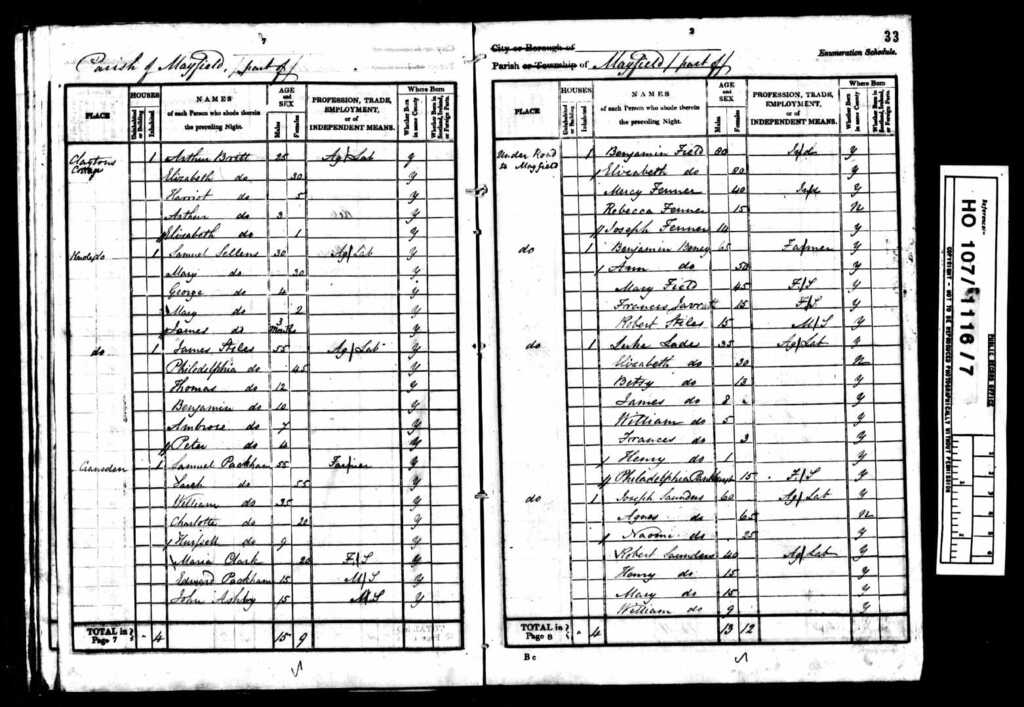 7
Parish of Mayfield /part of/
PLACE
HOUSES
Uninhabited or Building
Inhabited
NAMES
of each Person who abode therein the preceding Night.
AGE and SEX
Males
Females
PROFESSION, TRADE, EMPLOYMENT, or of INDEPENDENT MEANS.
Where Born
Whether Born in same County
Whether Born in Scotland, Ireland, or Foreign Parts.
1 Arthur 25 Ag/Lab y
Cottage Elizabeth do 20 y
Harriot do 5 y
Arthur do 3 y
Elizabeth do 1 y
do 1 Samuel Sellens 30 Ag/Lab y
Mary do 30 y
George do 4 y
Mary do 2 y
James do 3 Months y
do 1 James Stiles 55 Ag/Lab y
Philadelphia do 45 y
Thomas do 12 y
Benjamin do 10 y
Ambrose do 7 y
Peter do 4 y
Cransden 1 Samuel Packham 55 Farmer y
Sarah do 55 y
William do 25 y
Charlotte do 20 y
do 9 y
Maria Clark 20 F/S y
Edward Packham 15 M/S y
John Ashby 15 M/S y
TOTAL in Page 7 4 15 9
2
33
City or Borough of
Enumeration Schedule.
Parish or Township of Mayfield /part of/
PLACE
HOUSES
Uninhabited or Building
Inhabited
NAMES
of each Person who abode therein the preceding Night.
AGE and SEX
Males
Females
PROFESSION, TRADE, EMPLOYMENT, or of INDEPENDENT MEANS.
Where Born
Whether Born in same County
Whether Born in Scotland, Ireland, or Foreign Parts.
Under Road 1 Benjamin Field 80 Ind y
to Mayfield Elizabeth do 80 y
Mercy Fenner 40 Ind y
Rebecca Fenner 15 N
Joseph Fenner 14 y
do 1 Benjamin 65 Farmer y
Ann do 50 y
Mary Field 45 F/S y
Frances 15 F/S y
Robert Stiles 15 M/S y
do 1 Luke Lade 35 Ag/Lab y
Elizabeth do 30 N
Betsy do 13 y
James do 8 y
William do 5 y
Frances do 3 y
Henry do 1 y
Philadelphia 15 F/S y
do 1 Joseph Saunders 60 Ag/Lab y
Agnes do 65 N
Naomi do 25 y
Robert Saunders 40 Ag/Lab y
Henry do 15 y
Mary do 15 y
William do 9 y
TOTAL in Page 8 4 13 12
B c
PUBLIC RECORD OFFICE
Reference:-
HO 107/1116/7
COPYRIGHT - NOT TO BE REPRODUCED PHOTOGRAPHICALLY WITHOUT PERMISSION